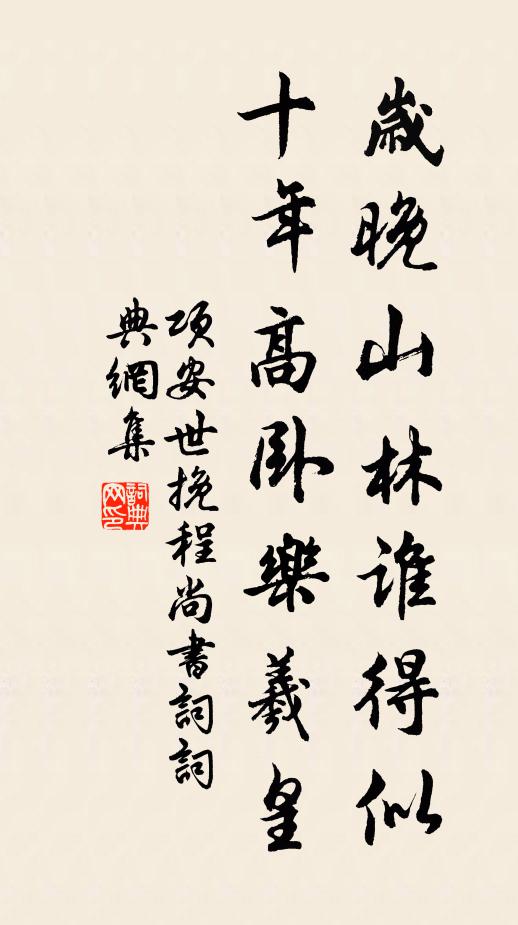 歲晚山林誰得似
十年高臥樂羲皇
項安世挽程尚書詞詞
典網集
詞典
网印